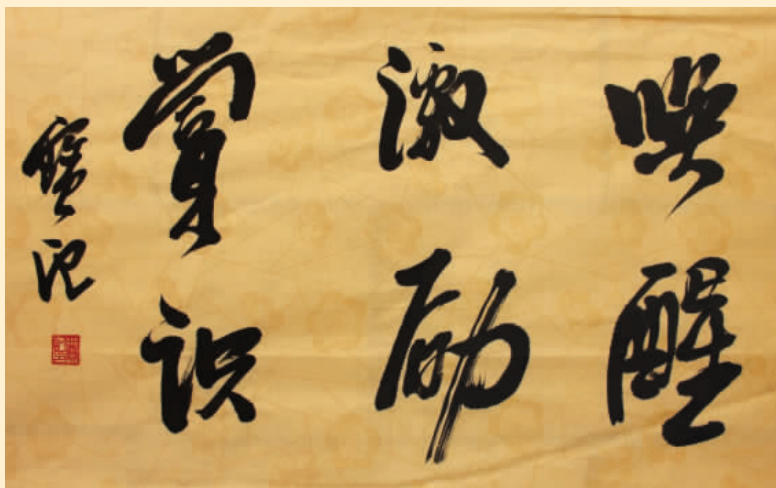 唤醒
激励
赏识